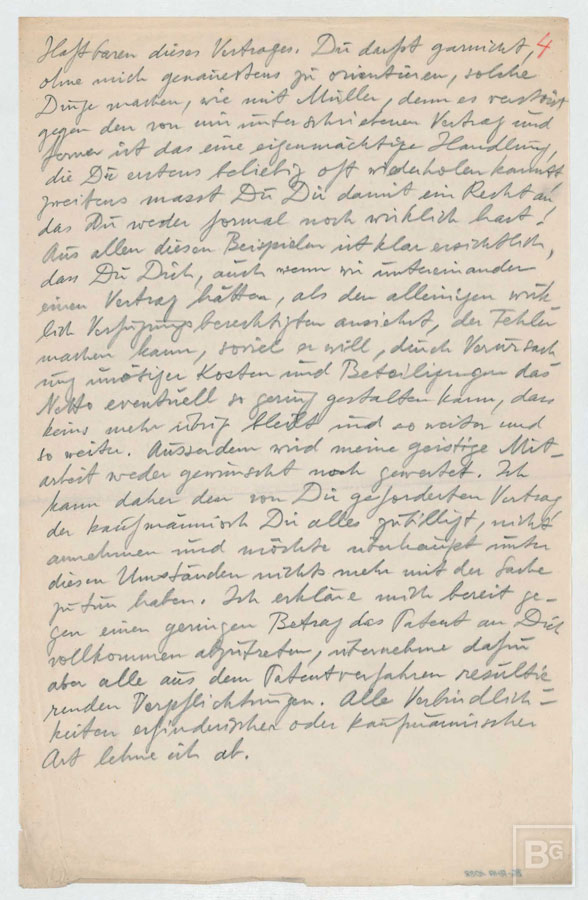 Haftbaren dieses Vertrages. Du darfst garnicht, 4
ohne mich genauestens zu orientieren, solche
Dinge machen, wie mit Müller, denn es verstösst
gegen den von mir unterschriebenen Vertrag und
ferner ist das eine eigenmächtige Handlung,
die Du erstens beliebig oft wiederholen kannst
zweitens masst Du Dir damit ein Recht an
das Du weder formal noch wirklich hast!
Aus allen diesen Beispielen ist klar ersichtlich,
dass Du Dich, auch wenn wir untereinander
einen Vertrag hätten, als den alleinigen wirk
lich Verfügungsberechtigten ansiehst, der Fehler
machen kann, soviel er will, durch Verursach
ung unnötiger Kosten und Beteiligungen das
Netto eventuell so gering gestalten kann, dass
keins mehr übrig bleibt und so weiter und
so weiter. Ausserdem wird meine geistige Mit-
arbeit weder gewünscht noch gewertet. Ich
kann daher den von Dir geforderten Vertrag
der kaufmännisch Dir alles zubilligt, nicht
annehmen und möchte überhaupt unter
diesen Umständen nichts mehr mit der Sache
zu tun haben. Ich erkläre mich bereit ge-
gen einen geringen Betrag das Patent an Dich
vollkommen abzutreten, übernehme dafür
aber alle aus dem Patentverfahren resultie
renden Verpflichtungen. Alle Verbindlich-
keiten erfinderischer oder kaufmännischer
Art lehne ich ab.
BG